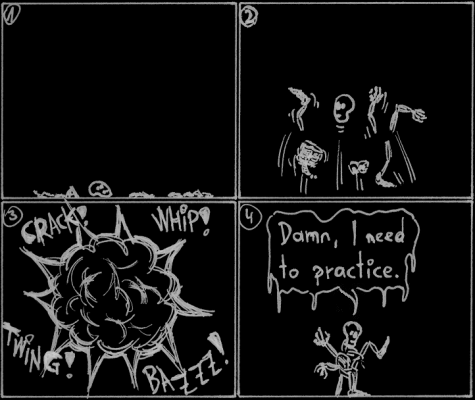 1
2
3
CRACK!
WHIP!
TWING!
BAZZZ!
4
Damn, I need
to practice.